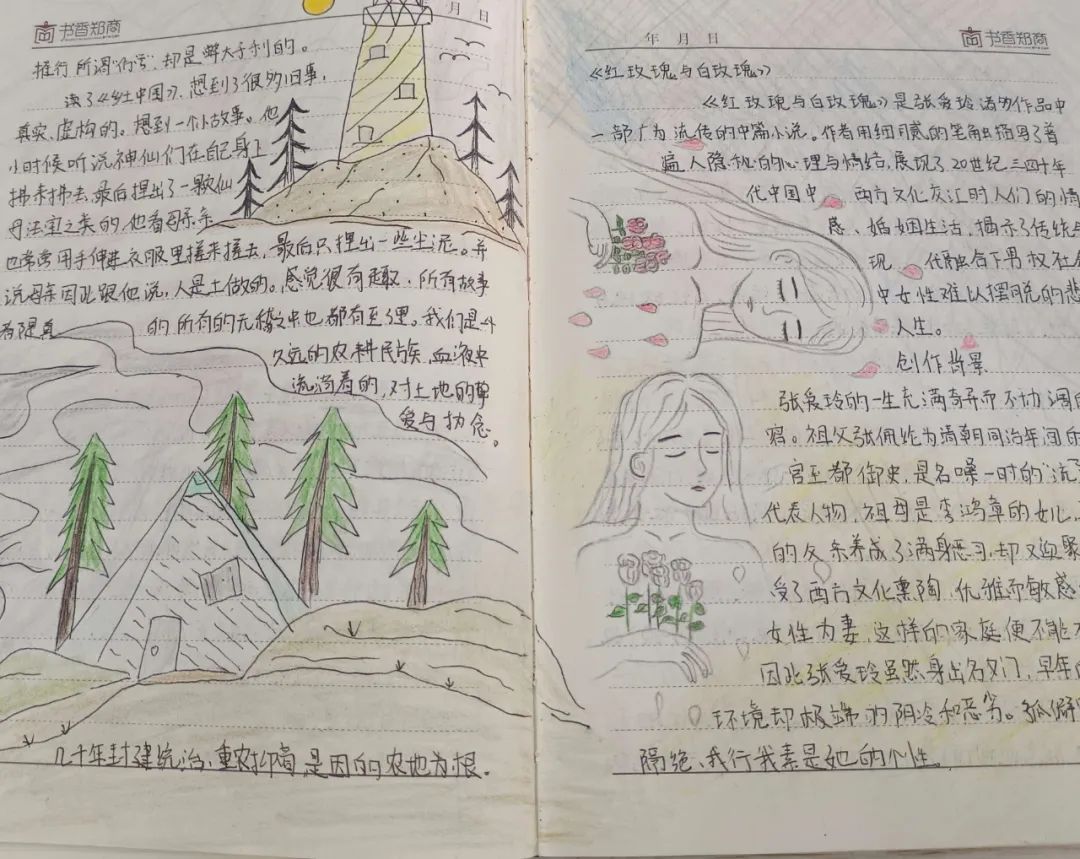 书香郑商
月 日
推行所谓“行雩”,却是弊大于利的。
读了《乡土中国》,想到了很多旧事,
真实、虚构的。想到一个小故事。他
小时候听说神仙们在自己身上
搓来搓去,最后捏出了一颗仙
丹法宝之类的,他看母亲亲
也常常用手伸进衣服里搓来搓去,最后只捏出一些尘泥。并
说母亲因此跟他说,人是土做的。感觉很有趣,所有故事
的所有的无稽之中也都有至理。我们是一个
久远的农耕民族,血液中
流淌着的,对土地的尊
爱与执念。
几千年封建统治,重农抑商,是因的农地为根.
年 月 日
书香郑商
《红玫瑰与白玫瑰》
《红玫瑰与白玫瑰》是张爱玲诸多作品中
一部广为流传的中篇小说。作者用细腻的笔触描写了普
遍人隐秘的心理与情结,展现了20世纪三四十年
代中国中、西方文化交汇时人们的情
感、婚姻生活,揭示了传统与
现代融合下男权社会
中女性难以摆脱的悲
人生。
创作背景
张爱玲的一生充满奇异而不协调的
窘。祖父张佩纶为清朝同治年间的
官至都御史,是名噪一时的“流
代表人物,祖母是李鸿章的女儿
的父亲养成了满身恶习,却又迎娶
受了西方文化熏陶、优雅而敏感
女性为妻,这样的家庭便不能
因此张爱玲虽然身出名门,早年
环境却极端的阴冷和恶劣。孤僻
隔绝、我行我素是她的个性。